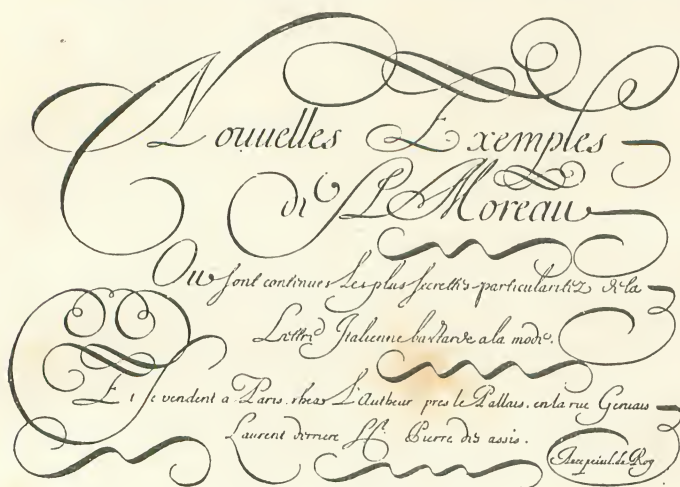 Nouuelles Exemples
de P. Moreau
Ou sont continues Les plus secrettes particularitez de la
Lettre Italienne bastarde a la mode.
Et se vendent a Paris. chez L'Autheur pres le Pallais. en la rue Geruais
Laurent derriere St. Pierre des assis.
Auec priuil. du Roy